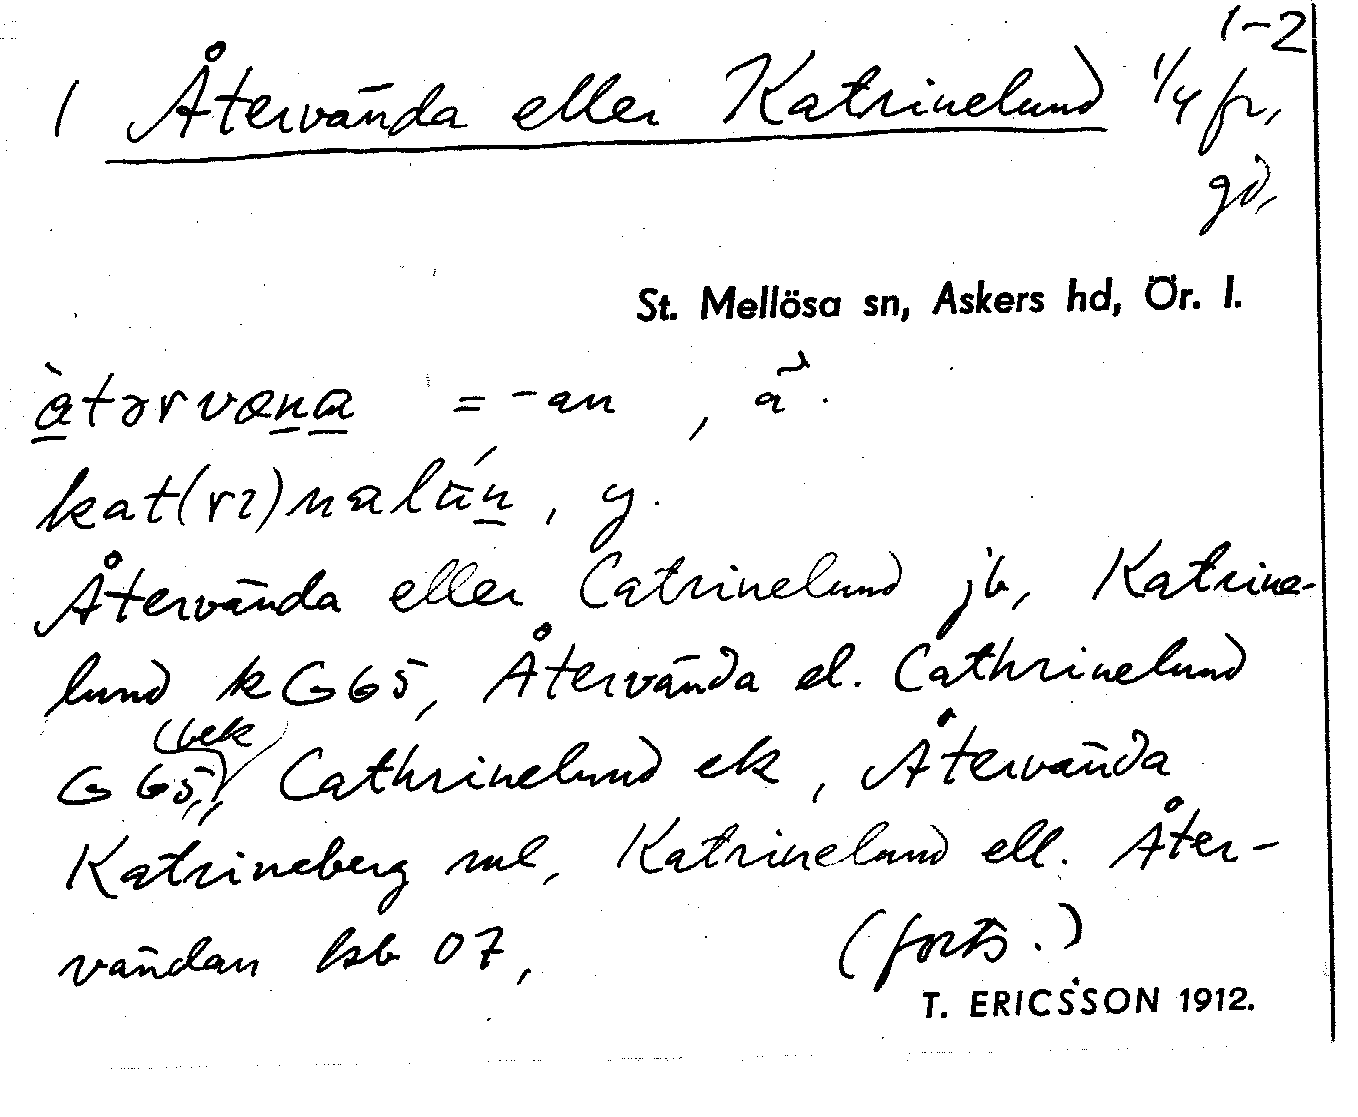 1-2
1 Återvända eller Katrinelund 1/4 fr,
gd,
St. Mellösa sn, Askers hd, Ör. l.
àtərvæna = -an , a
kat(rı)nalún , y.
Återvända eller Catrinelund jb, Katrine-
lund k G65, Återvända el. Cathrinelund
(bek
G G65,) Cathrinelund ek , Återvända
Katrineberg ml, Katrinelund ell. Åter-
vändan hsb 07,
(forts.)
T. ERICSSON 1912.